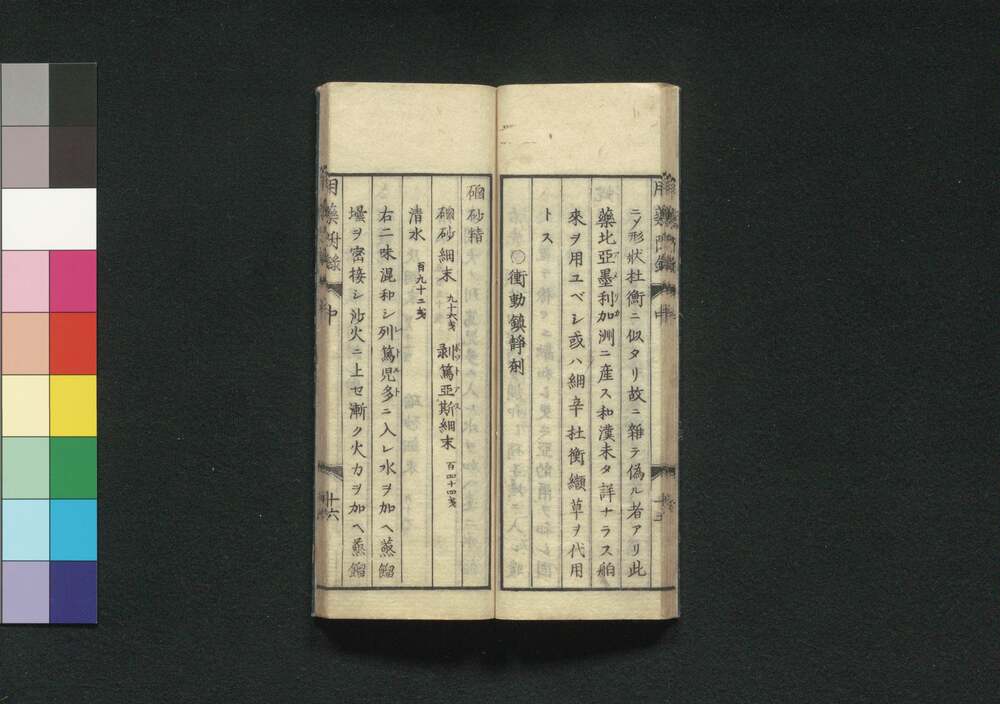 ニノ形狀杜衡ニ似タリ故ニ雜テ偽ル者アリ此
藥北亞墨利加洲ニ產ス和漢未タ詳ナラス舶
來ヲ用ユベシ或ハ細辛杜衡纈草ヲ代用
トス
〇衝動鎮靜劑
硇砂精
硇砂細末 九十六戔 剥篤亞斯細末 百四十四戔
清水 百九十二戔
右二味混和シ列篤児多ニ入レ水ヲ加ヘ蒸餾
壜ヲ密接シ沙火ニ上セ漸ク火力ヲ加ヘ蒸餾
用藥附錄 中 十六